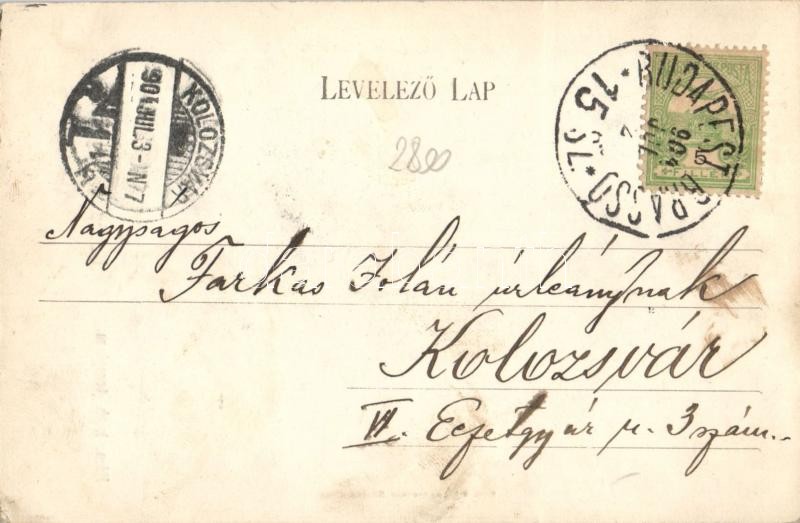 LEVELEZŐ LAP
KOLOZSVÁR
904 JUL.3-N7
BUDAPEST BRASSÓ
15 SZ.
904
JUL
5
FILLÉR
2800
Nagyságos
Farkas Jolán úrleánynak
Kolozsvár
VI. Ecetgyár u. 3 szám.